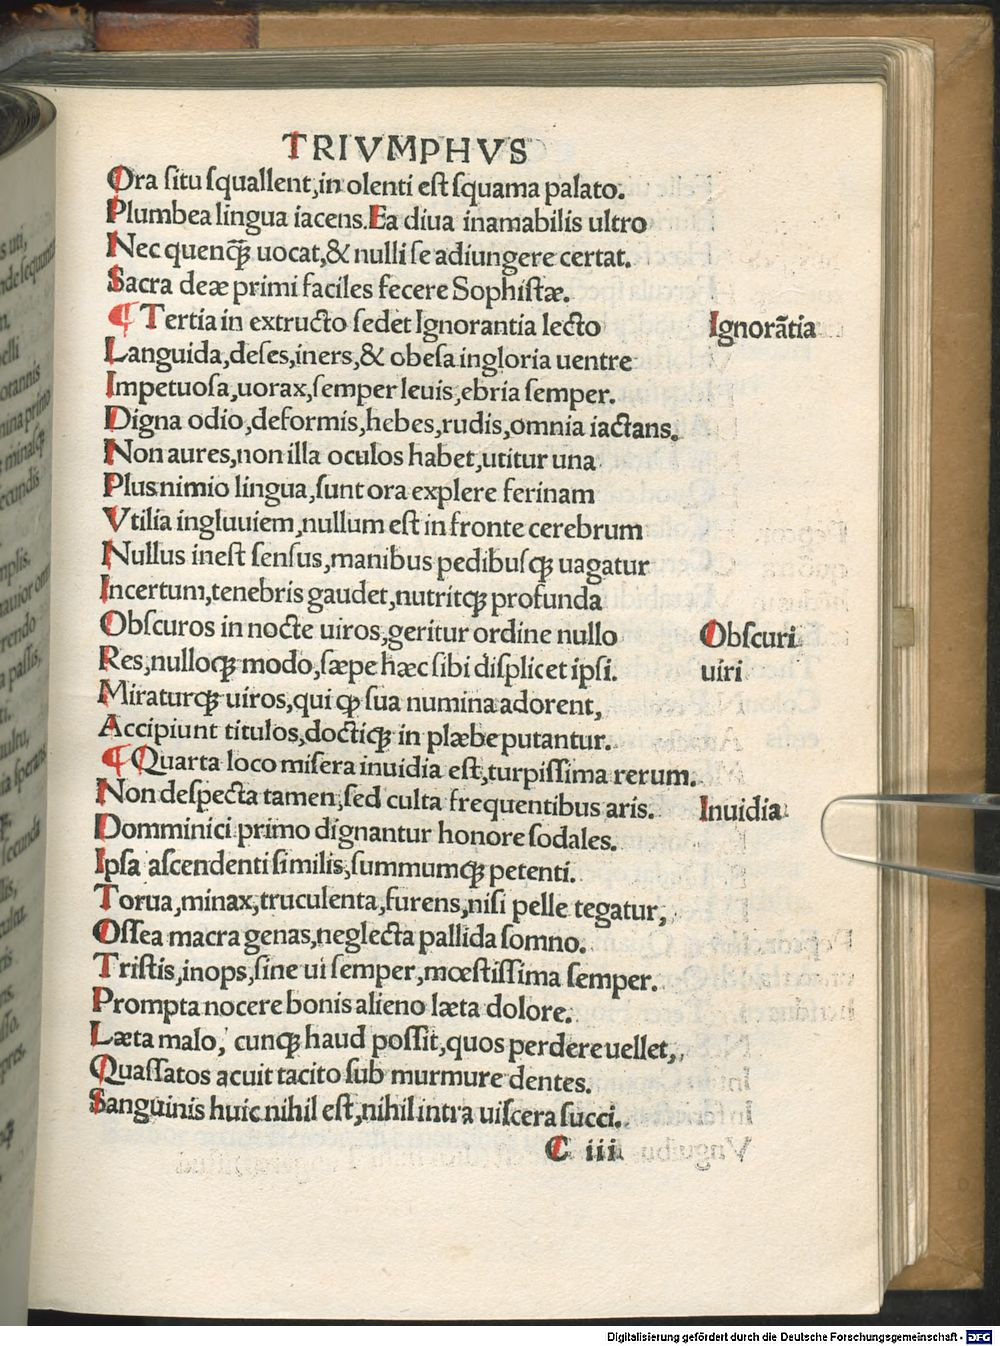 TRIVMPHVS
Ora situ squallent, in olenti est squama palato.
Plumbea lingua iacens. Ea diua inamabilis ultro
Nec quenq̃ uocat, & nulli se adiungere certat.
Sacra deæ primi faciles fecere Sophistæ.
¶ Tertia in extructo sedet Ignorantia lecto
Ignorãtia
Languida, deses, iners, & obesa ingloria uentre
Impetuosa, uorax, semper leuis, ebria semper.
Digna odio, deformis, hebes, rudis, omnia iactans.
Non aures, non illa oculos habet, utitur una
Plus nimio lingua, sunt ora explere ferinam
Vtilia ingluuiem, nullum est in fronte cerebrum
Nullus inest sensus, manibus pedibusqꝫ uagatur
Incertum, tenebris gaudet, nutritqꝫ profunda
Obscuros in nocte uiros, geritur ordine nullo
Obscuri
Res, nulloqꝫ modo, sæpe hæc sibi displicet ipsi.
uiri
Miraturqꝫ uiros, qui qꝫ sua numina adorent,
Accipiunt titulos, doctiqꝫ in plæbe putantur.
¶ Quarta loco misera inuidia est, turpissima rerum.
Non despecta tamen, sed culta frequentibus aris.
Inuidia
Domminici primo dignantur honore sodales.
Ipsa ascendenti similis, summumqꝫ petenti.
Torua, minax, truculenta, furens, nisi pelle tegatur,
Ossea macra genas, neglecta pallida somno.
Tristis, inops, sine ui semper, mœstissima semper.
Prompta nocere bonis alieno læta dolore.
Læta malo, cunqꝫ haud possit, quos perdere uellet,
Quassatos acuit tacito sub murmure dentes.
Sanguinis huic nihil est, nihil intra uiscera succi.
C iii
Digitalisierung gefördert durch die Deutsche Forschungsgemeinschaft - DFG